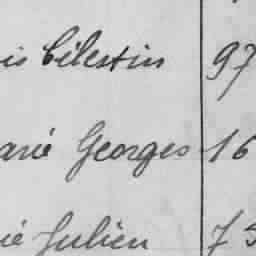 is Célestin 97
arié Georges 16
ié Julien 75